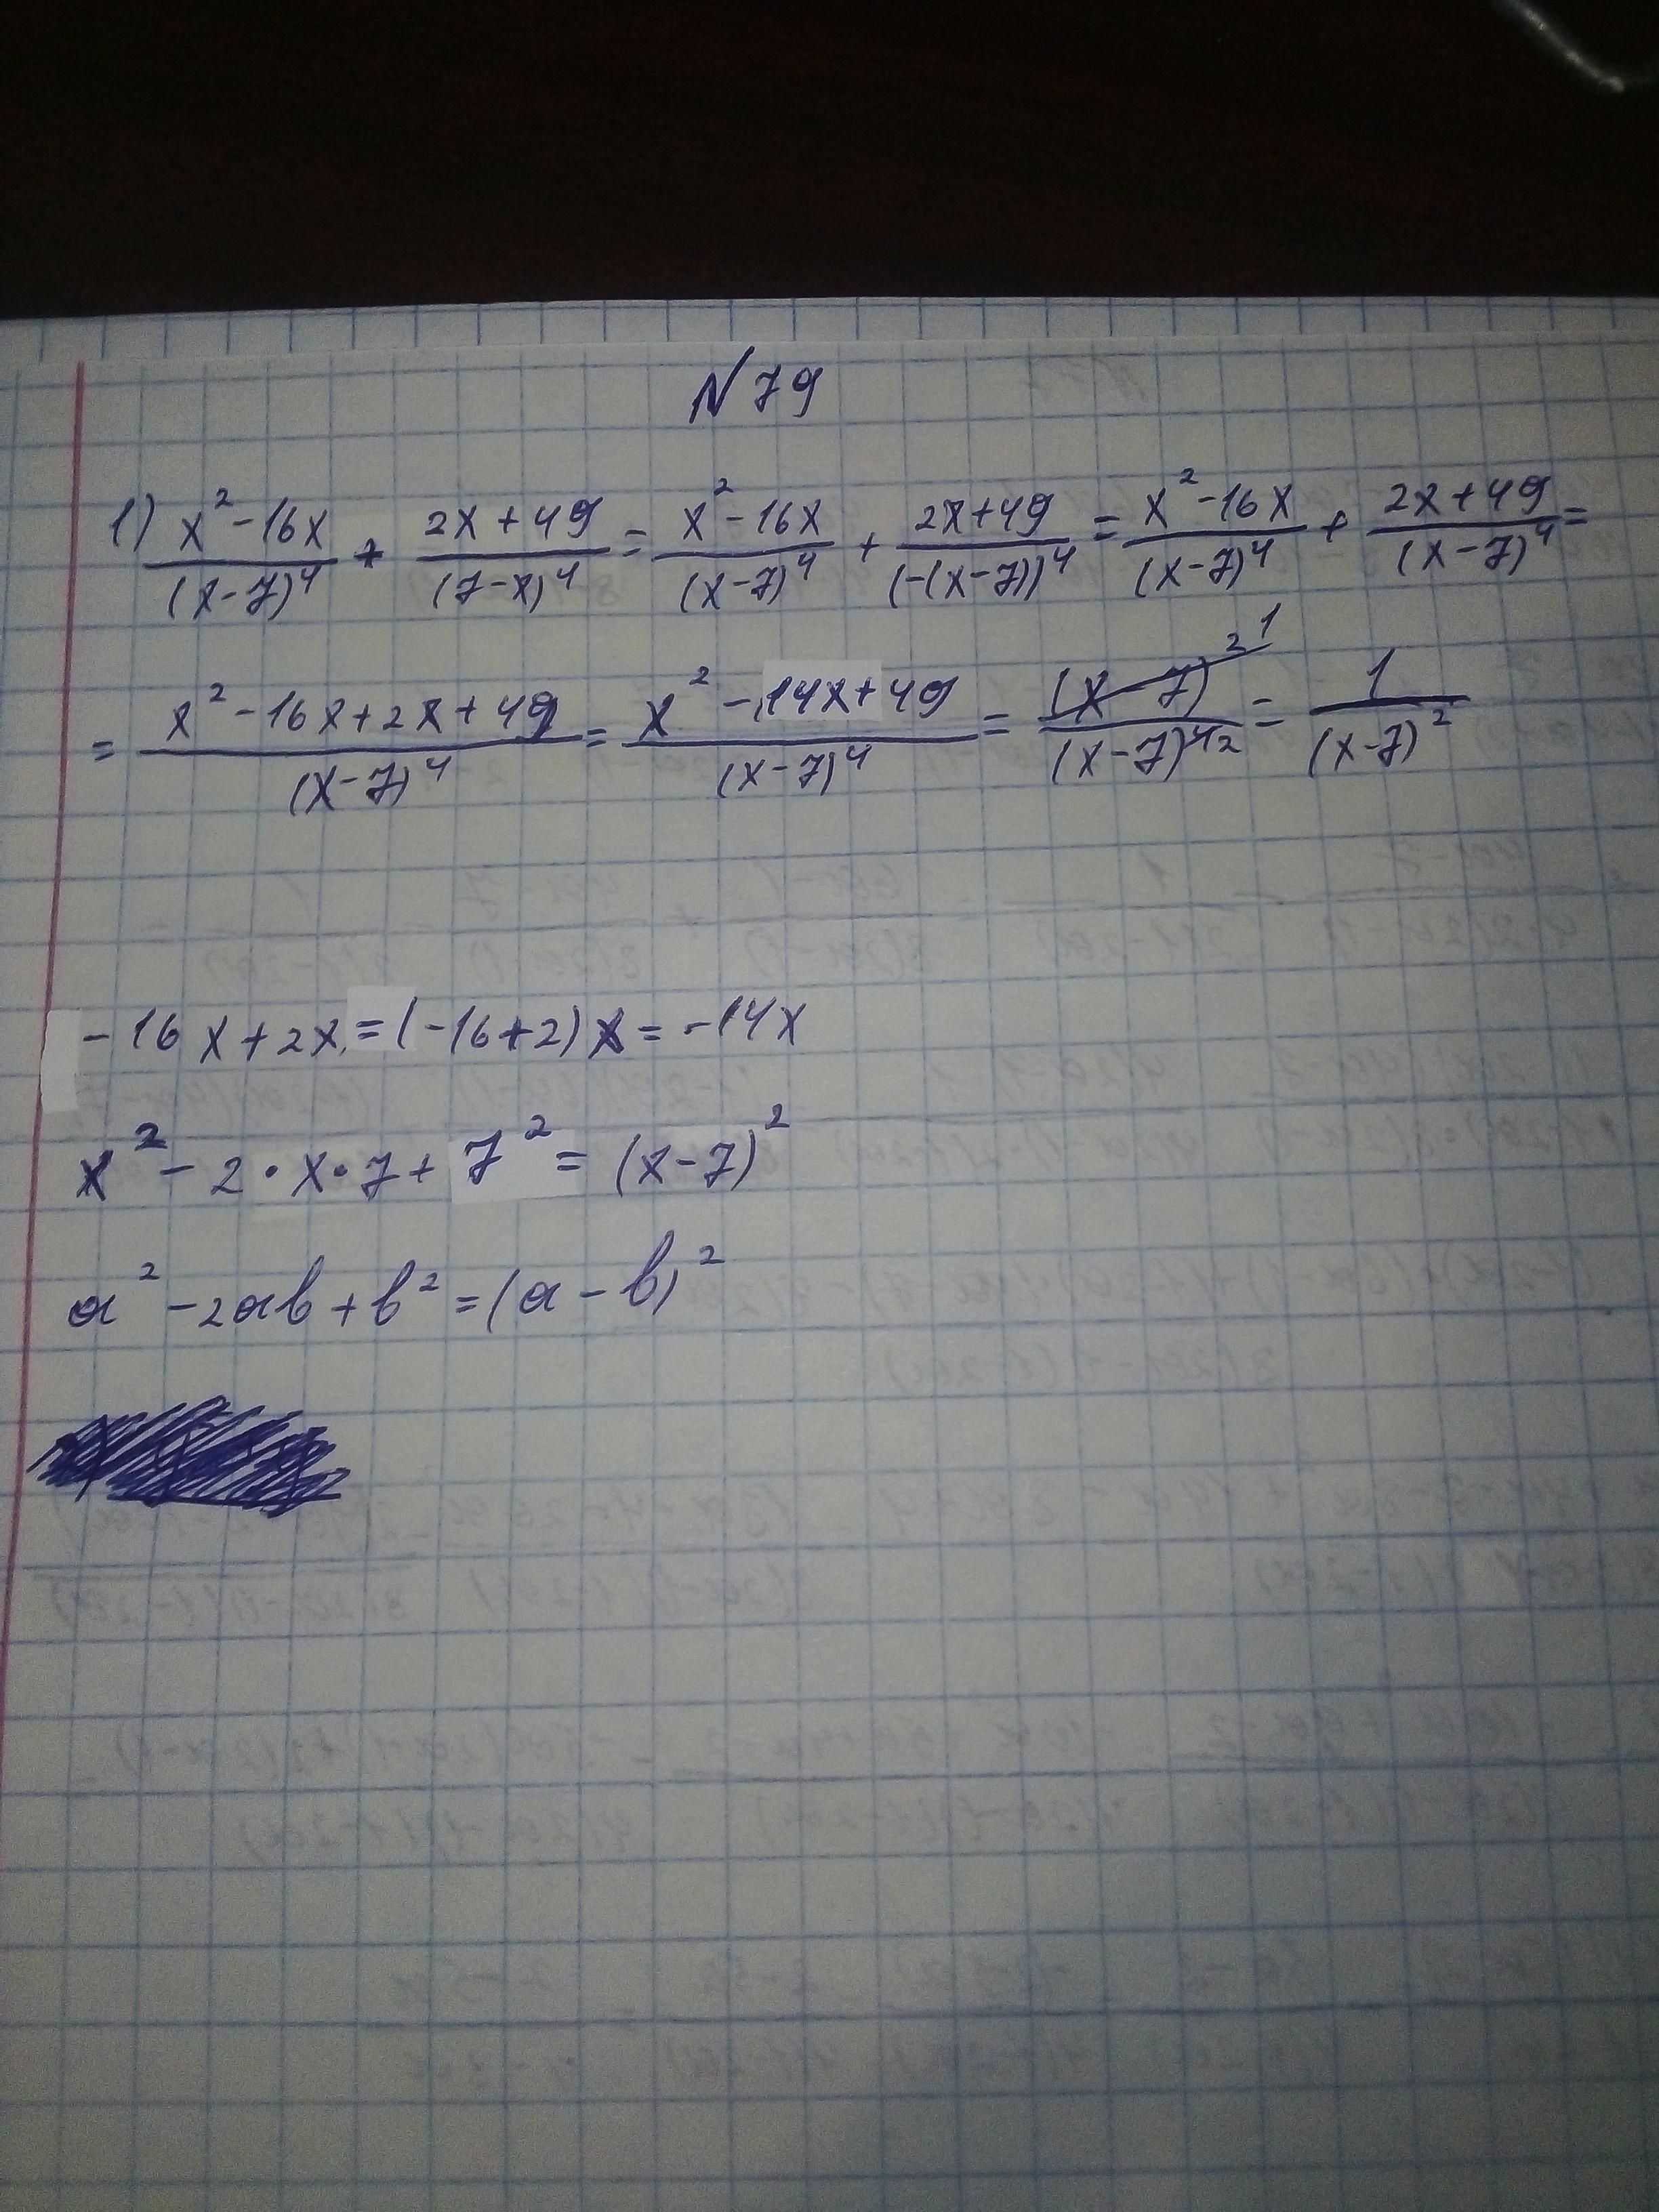 N 79
1) (x² - 16x)/(x-7)⁴ + (2x + 49)/(7-x)⁴ = (x² - 16x)/(x-7)⁴ + (2x+49)/(-(x-7))⁴ = (x² - 16x)/(x-7)⁴ + (2x+49)/(x-7)⁴ =
= (x² - 16x + 2x + 49)/(x-7)⁴ = (x² - 14x + 49)/(x-7)⁴ = (x-7)² ¹/(x-7)⁴ ² = 1/(x-7)²
- 16x + 2x = (-16+2)x = -14x
x² - 2·x·7 + 7² = (x-7)²
a² - 2ab + b² = (a - b)²